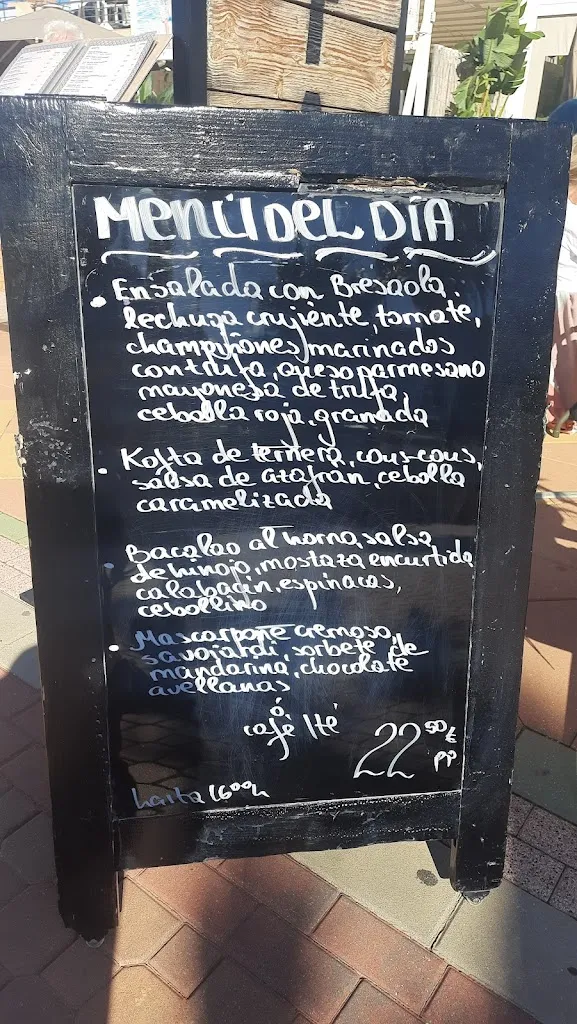 MENÚ DEL DÍA
Ensalada con Bresaola.
lechuga crujiente, tomate,
champiñones marinados
con trufa, queso parmesano
mayonesa de trufa,
cebolla roja, granada
Kofta de ternera, cous-cous,
salsa de azafrán, cebolla
caramelizada
Bacalao al horno, salsa
de hinojo, mostaza encurtida
calabacín, espinacas,
cebollino
Mascarpone cremoso,
savoiardi, sorbete de
mandarina, chocolate
avellanas
ó
café / té
22 50 €
PP
hasta 16 00h